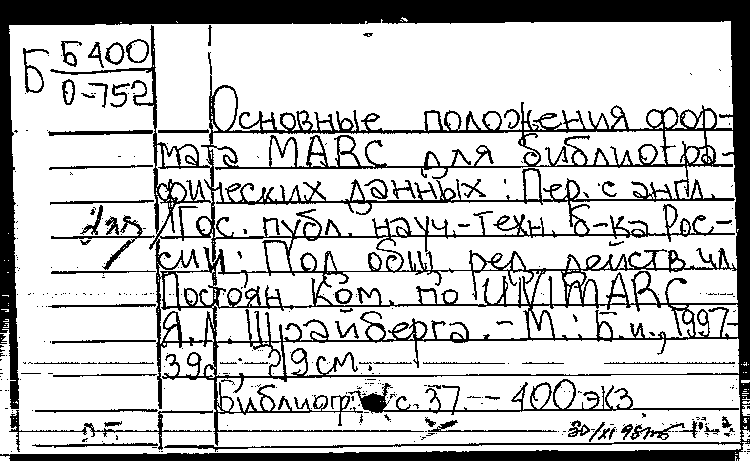 Б Б400
О-752
Основные положения фор-
мата MARC для библиогра-
фических данных : Пер. с англ.
/Гос. публ. науч.-техн. б-ка Рос-
сии; Под общ. ред. действ. чл.
Постоян. Ком. по UNIMARC
Я.Л. Шрайберга. - М. : Б.и., 1997.-
39с ; 29см.
Библиогр. с. 37. -- 400 экз.